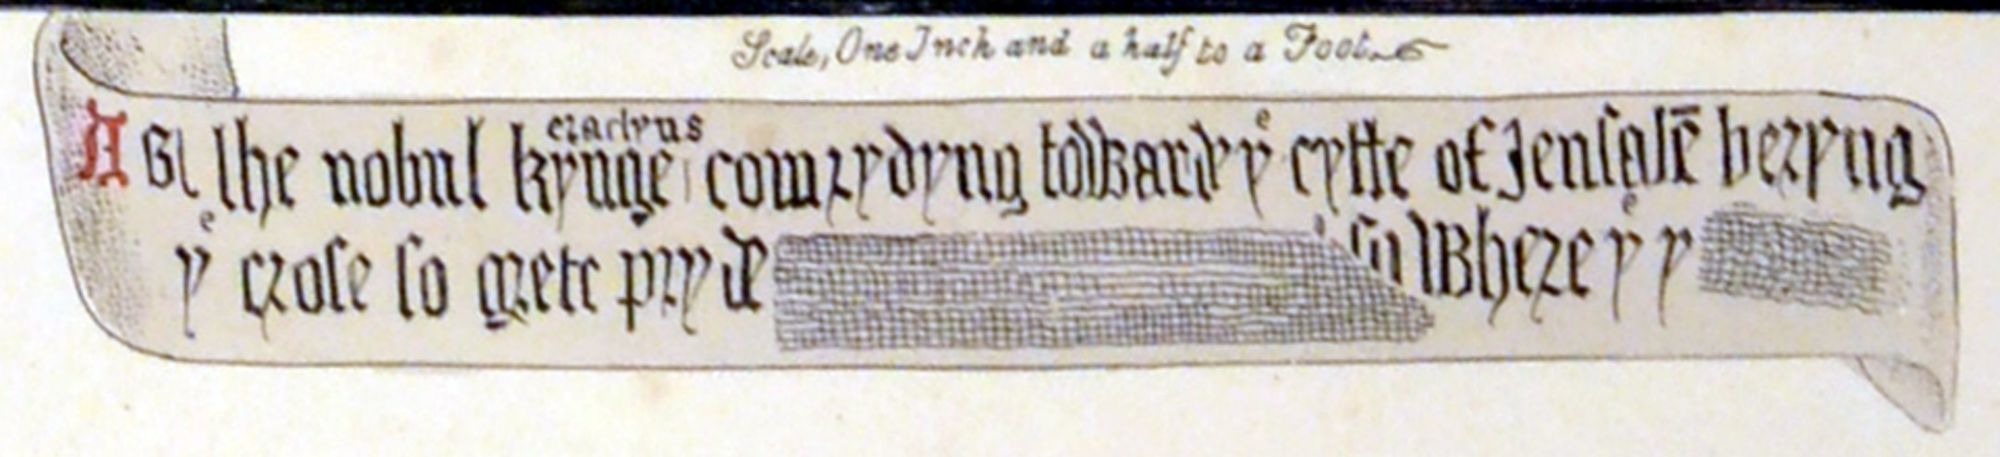 Scale, One Inch and a half to a Foot.
eraclyus
the nobul kynge com rydyng towarde yͤ cytte of Jerusalē beryng
yͤ crose so grete pryde so where yͤ y